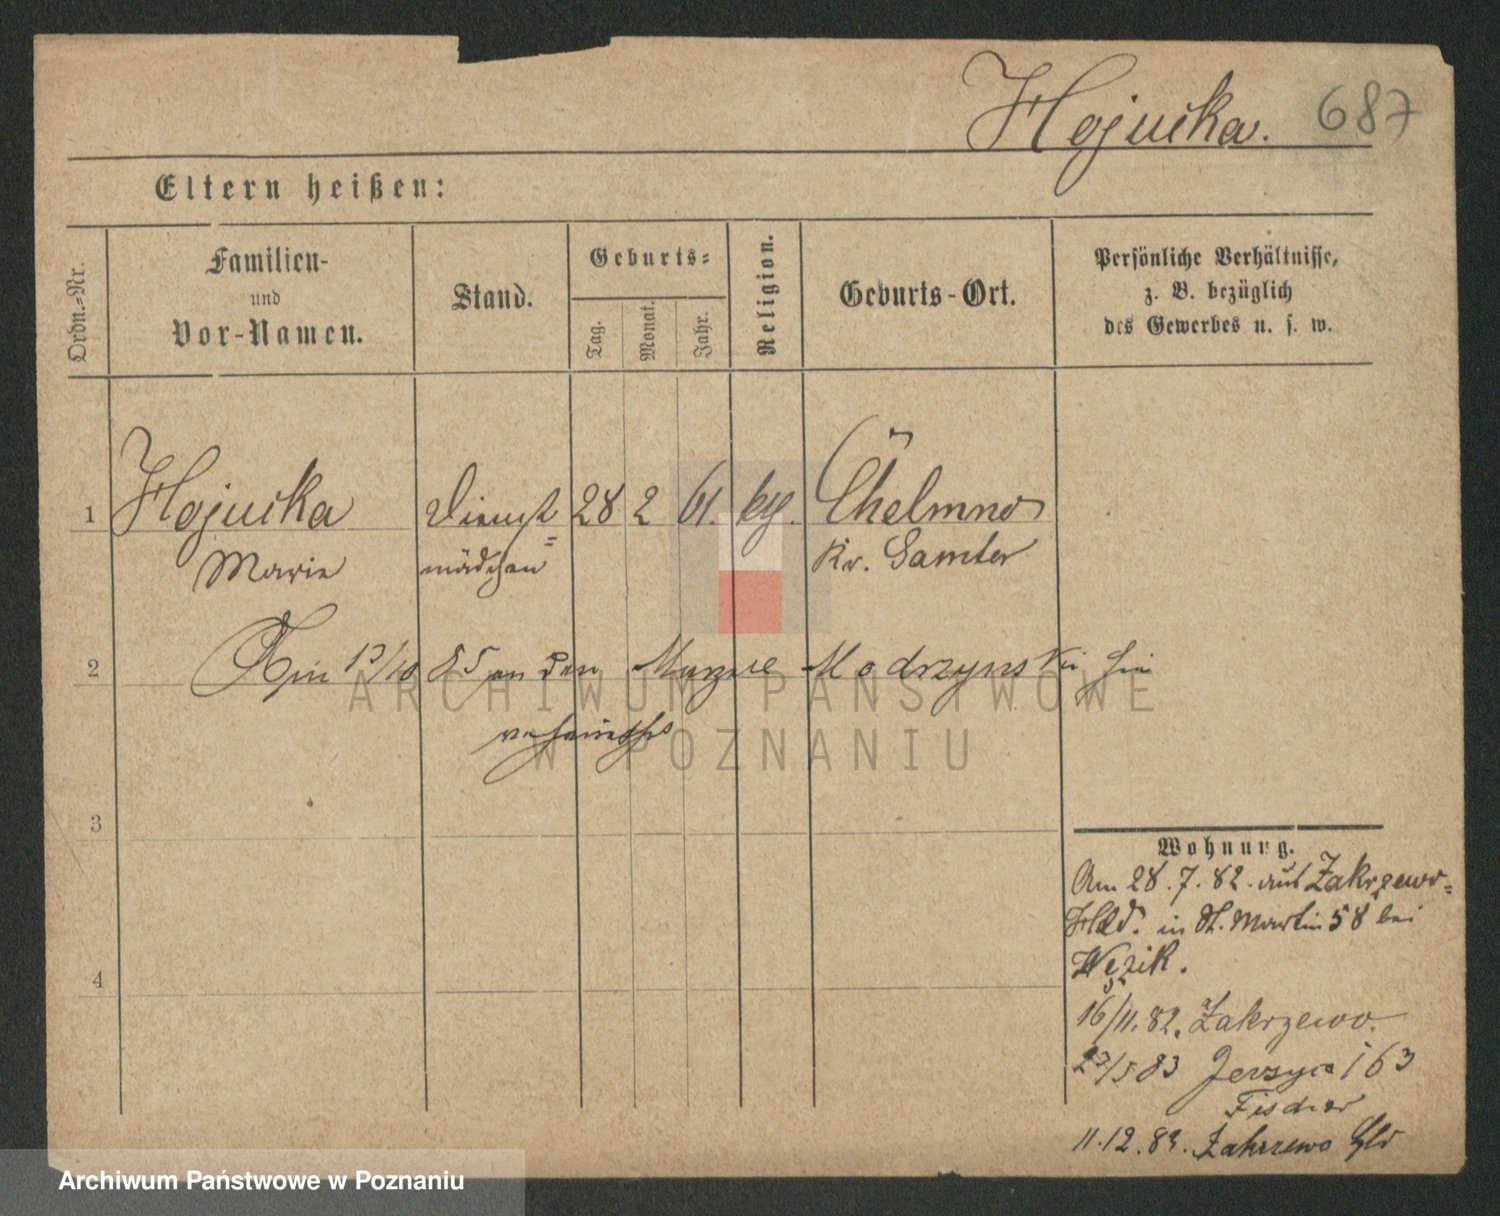 Hojucka. 687
Eltern heißen:
Ordn.-Nr.
Familien-
und
Vor-Namen.
Stand.
Geburts-
Tag.
Monat.
Jahr.
Religion.
Geburts-Ort.
Persönliche Verhältnisse,
z. B. bezüglich
des Gewerbes u. s. w.
1 Hojucka Dienst= 28 2 61. kg. Chelmno
Marie mädchen Kr. Samter
2 Am 13/10 85 an den Modrzynski
3
4
Wohnung.
Am 28.7.82. aus Zakrzewo=
Hld. in St. Martin 58 bei
16/11.82. Zakrzewo.
23/5 83 Jerzyce 163
Fischer
11.12.83. Zakrzewo Hld
ARCHIWUM PAŃSTWOWE
W POZNANIU
Archiwum Państwowe w Poznaniu